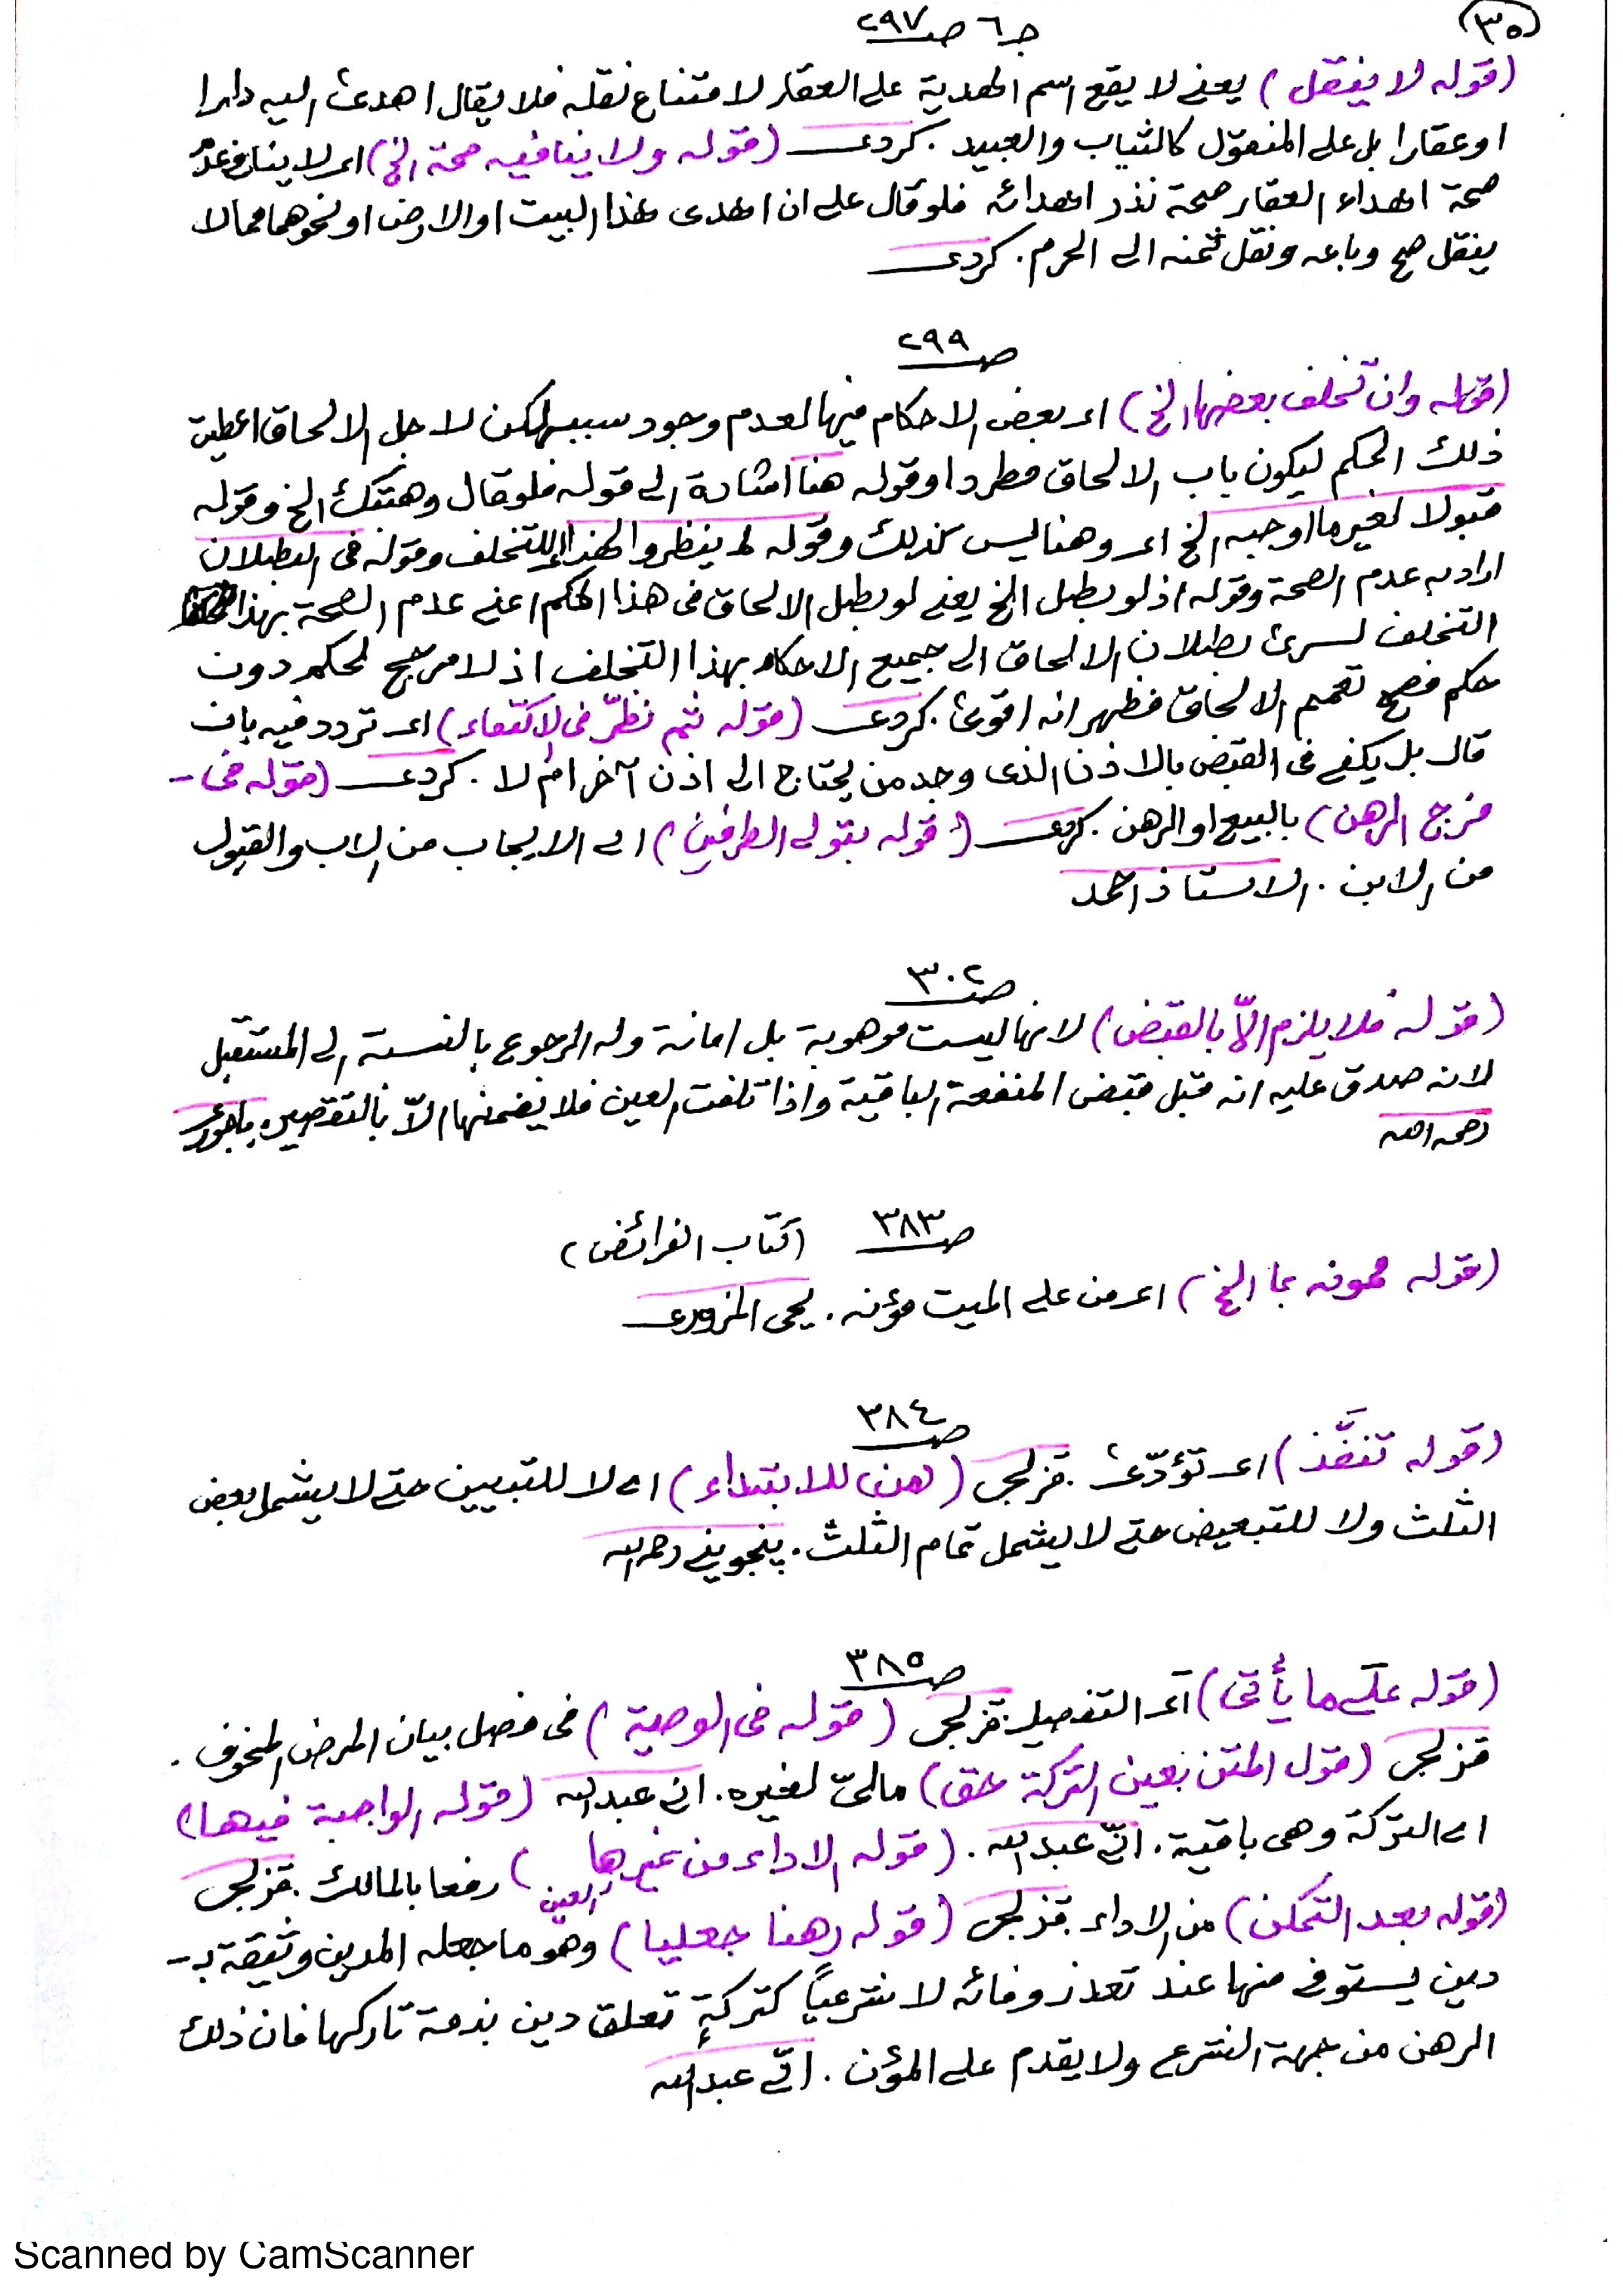 ٣٥
جـ٦ صـ٢٩٧
(قوله لا ينقل) يعنى لا يقع اسم الهدية على العقار لامتناع نقله فلا يقال اهدى اليه دارا
او عقارا بل على المنقول كالثياب والعبيد . كردى (قوله ولا ينافيه صحة الخ) اى لا ينافى عدم
صحة اهداء العقار صحة نذر اهدائه فلو قال على ان اهدى هذا البيت او الارض او نحوهما مما لا
ينقل صح وباعه ونقل ثمنه الى الحرم . كردى
صـ٢٩٩
(قوله وان تخلف بعضها الخ) اى بعض الاحكام فيها لعدم وجود سببه لكن لاجل الالحاق اعطيت
ذلك الحكم ليكون باب الالحاق مطردا وقوله هنا اشارة الى قوله فلو قال وهبتك الخ وقوله
قبولا لغير ما اوجبه الخ اى وهنا ليس كذلك وقوله لم ينظروا لهذا اى للتخلف وقوله فى البطلان
اراد به عدم الصحة وقوله اذ لو بطل الخ يعنى لو بطل الالحاق فى هذا الحكم اعنى عدم الصحة بهذا
التخلف لسرى بطلان الالحاق الى جميع الاحكام بهذا التخلف اذ لا مرجح لحكم دون
حكم فصح تعميم الالحاق فظهر انه اقوى . كردى (قوله ثم نظّر فى الاكتفاء) اى تردد فيه بان
قال بل يكفى فى القبض بالاذن الذى وجد من يحتاج الى اذن آخر ام لا . كردى (قوله فى -
فرج الرهن) بالبيع او الرهن . كردى (قوله بتولى الطرفين) اى الايجاب من الاب والقبول
من الابن . الاستاذ احمد
صـ٣٠٢
(قوله فلا يلزم الّا بالقبض) لانها ليست موهوبة بل امانة وله الرجوع بالنسبة الى المستقبل
لانه صدق عليه انه قبل قبض المنفعة الباقية واذا تلفت العين فلا يضمنها الاّ بالتقصير.
رحمه الله
صـ٣٨٣ (كتاب الفرائض)
(قوله ممونه بما الخ) اى من على الميت مؤنه . يحى المزورى
صـ٣٨٤
(قوله تنفَّذ) اى تؤدّى . قزلجى (من للابتداء) اى لا للتبيين حتى لا يشمل بعض
الثلث ولا للتبعيض حتى لا يشمل تمام الثلث . پنجوينى رحمه الله
صـ٣٨٥
(قوله على ما يأتى) اى التفصيل . قزلجى (قوله فى الوصية) فى فصل بيان المرض المخوف .
قزلجى (قول المتن بعين التركة حق) مالىّ لغيره . ابى عبدالله (قوله الواجبة فيها)
اى التركة وهى باقية . ابى عبدالله . (قوله الاداء من غيرها العين) رفعا بالمالك . قزلجى
(قوله بعد التمكن) من الاداء . قزلجى (قوله رهنا جعليا) وهو ما جعله المدين وثيقة بـ -
دين يستوفى منها عند تعذر وفائه لا شرعياً كتركةٍ تعلق دين بذمة تاركها فان ذلك
الرهن من جهة الشرع ولا يقدم على المؤن . ابى عبدالله
Scanned by CamScanner